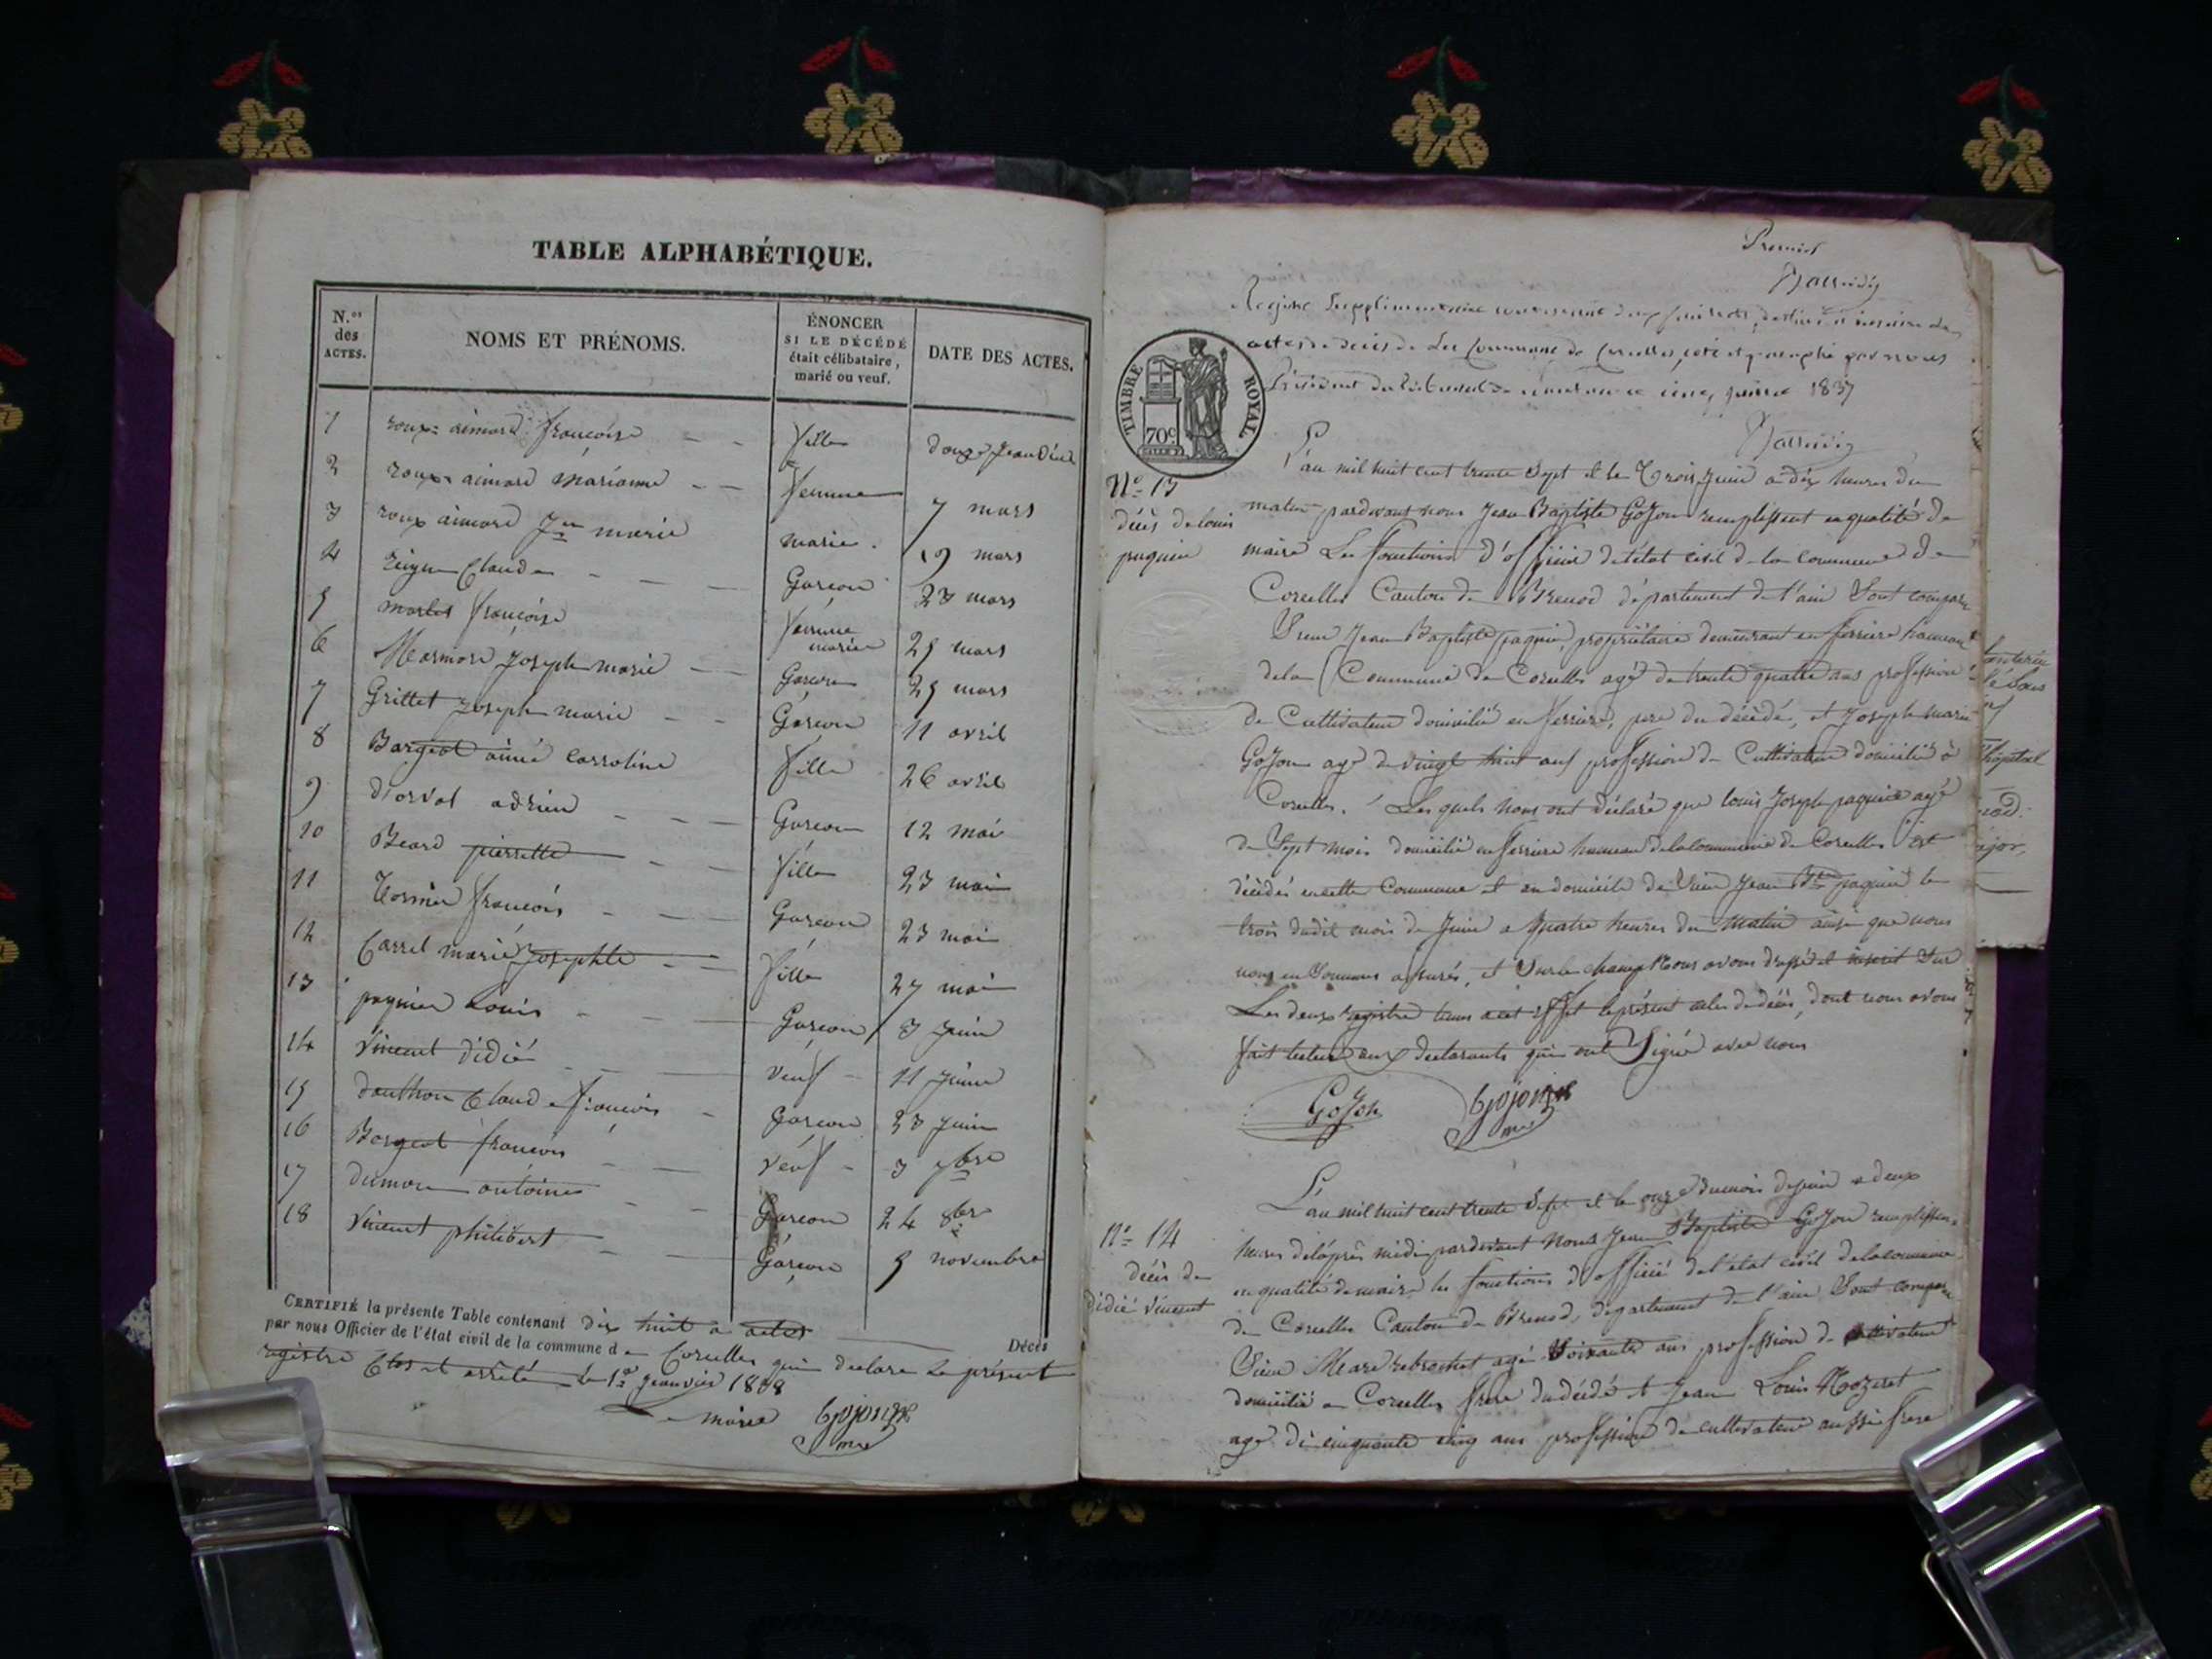 TABLE ALPHABÉTIQUE.
N.os des ACTES.
NOMS ET PRÉNOMS.
ÉNONCER SI LE DÉCÉDÉ était célibataire, marié ou veuf.
DATE DES ACTES.
1 roux aimard françoise fille douze
2 roux aimard marianne femme 7 mars
3 roux aimard Jn marie marie 19 mars
4 Claude Garcon 23 mars
5 françoise femme mariée 25 mars
6 Joseph marie Garcon 29 mars
7 Grittet Joseph marie Garcon 11 avril
8 Bargeot aimé carroline fille 26 avril
9 d'orvat adrien Garcon 12 mai
10 Beard pierrette fille 23 mai
11 françois Garcon 23 mai
12 Carrel marie Josephte fille 27 mai
13 paquier Louis Garcon 3 Juin
14 Vincent didié veuf 11 Juin
15 Claude françois Garcon 23 Juin
16 Bargeot françois veuf 3 7bre
17 antoine Garcon 24 8bre
18 Vincent philibert Garcon 5 novembre
CERTIFIÉ la présente Table contenant dix huit actes Décès
par nous Officier de l'état civil de la commune de Corcelles qui declare le présent
registre Clos et arrêté le 1er Janvier 1838
maire
Premier
Registre Supplémentaire contenant deux feuillets, destiné à inscrire les
actes de décès de la Commune de Corcelles, coté et paraphé par nous
Président du Tribunal de 1837
TIMBRE ROYAL
70c
L'an mil huit cent trente Sept et le Trois Juin a dix heures du
No 13
décès de louis
paquier
matin pardevant nous Jean Baptiste Gojon remplissent en qualité de
maire Les fonctions d'officier de l'état civil de la commune de
Corcelles Canton de Brenod département de l'ain Sont comparu
Sieur Jean Baptiste paquier, propriétaire demeurant en ferriere hameau
de la Commune de Corcelles agé de trente quatre ans profession
de Cultivateur domicilié en ferriere, pere du décédé, et Joseph marie
Gojon agé de vingt huit ans profession de Cultivateur domicilié à
Corcelles. Les quels nous ont déclaré que louis Joseph paquier agé
de Sept mois domicilié en ferriere hameau de la commune de Corcelles est
décédés en cette Commune et au domicile de Sieur Jean Bte paquier le
trois dudit mois de Juin a quatre heures du matin ainsi que nous
nous en Sommes assurés, et Sur le champ Nous avons dressé et inscrit Sur
Les deux registre tenus a cet effet le présent acte de décès, dont nous avons
fait lecture aux declarants qui ont Signé avec nous
GoJon
L'an mil huit cent trente Sept et le onze du mois de juin a deux
No 14
décès de
didié Vincent
heures de l'après midi pardevant Nous Jean Baptiste Gojon remplissent
en qualité de maire les fonctions d'officié de l'état civil de la commune
de Corcelles Canton de Brenod, département de l'ain Sont comparu
Sieur agé Soixante ans profession de cultivateur
domicilié a Corcelles frere du décédé et Jean Louis
agé de cinquante cinq ans profession de cultivateur aussi frere
hôpital